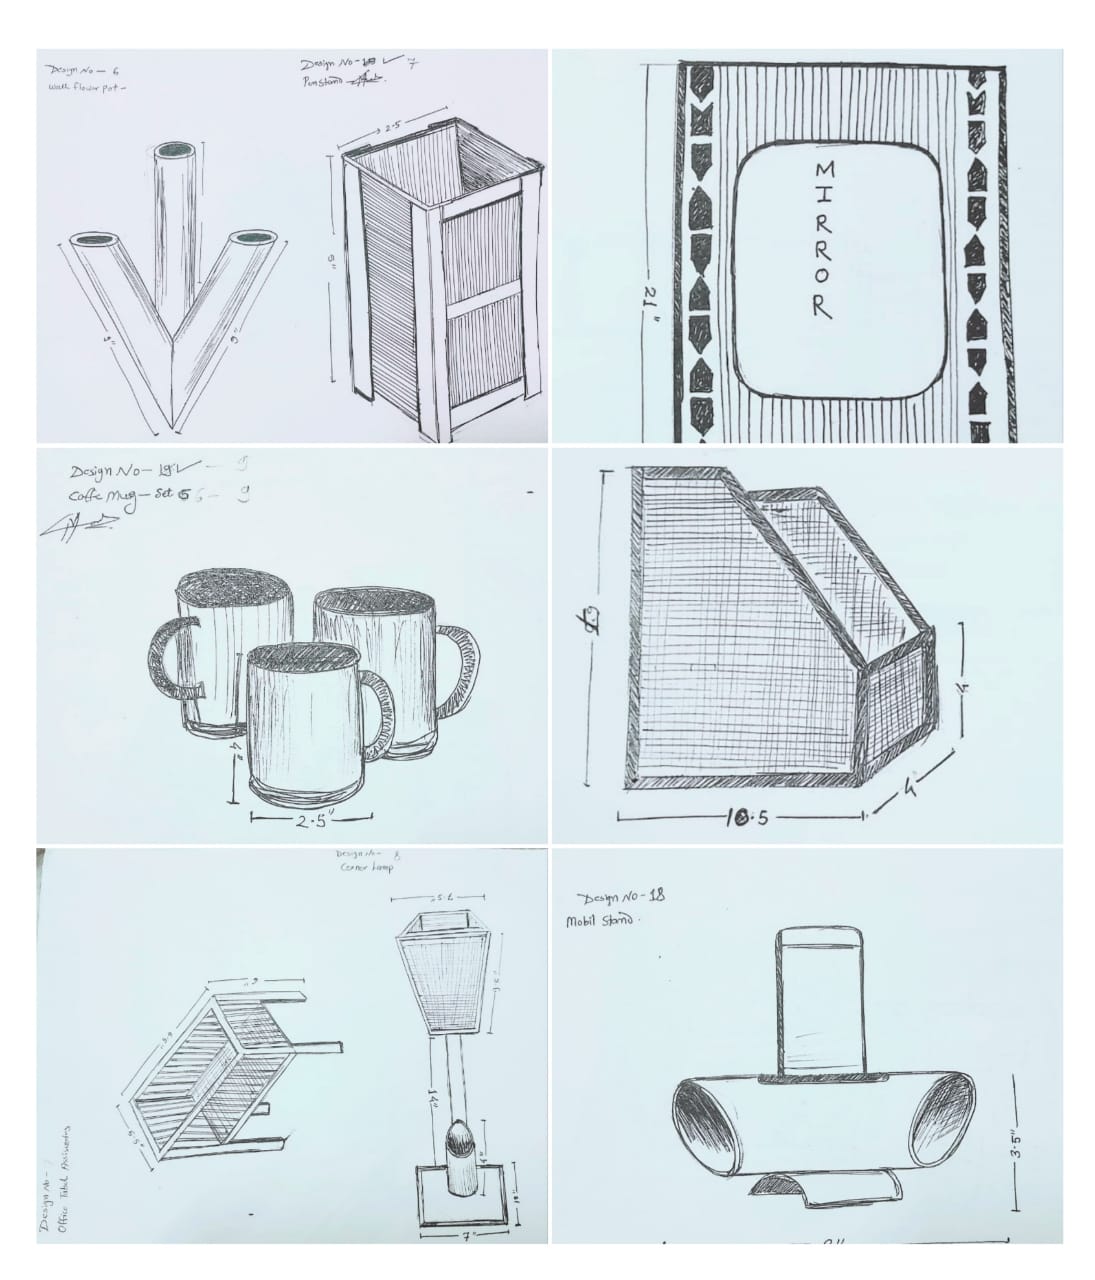 Design No - 6
Wall flower pot -
Design No - 18 ✓ 7
Pen stand
2.5
9"
9"
MIRROR
21"
Design No - 19 ✓ - 9
Coffe Mug - Set 6 - 9
4"
2.5"
10.5
4"
4"
Design No - 8
Corner Lamp
7.5"
9.5"
14"
4"
7"
6"
5.5"
Design No -
Office Tabel
Design No - 18
Mobil Stand.
3.5"